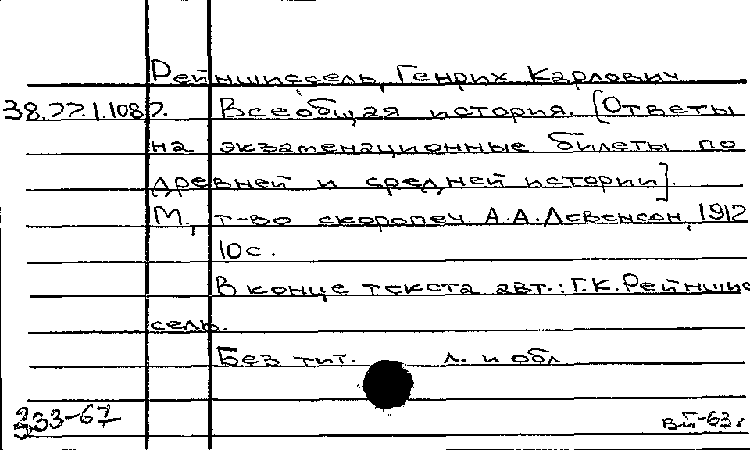 Рейншиссель, Генрих Карлович
38.22.1.1087. Всеобщая история. [Ответы
на экзаменационные билеты по
древней и средней истории].
М, т-во скоропеч А.А.Левенсон, 1912
10с.
В конце текста авт.: Г.К.Рейншис
сель.
Без тит. л. и обл
333-67